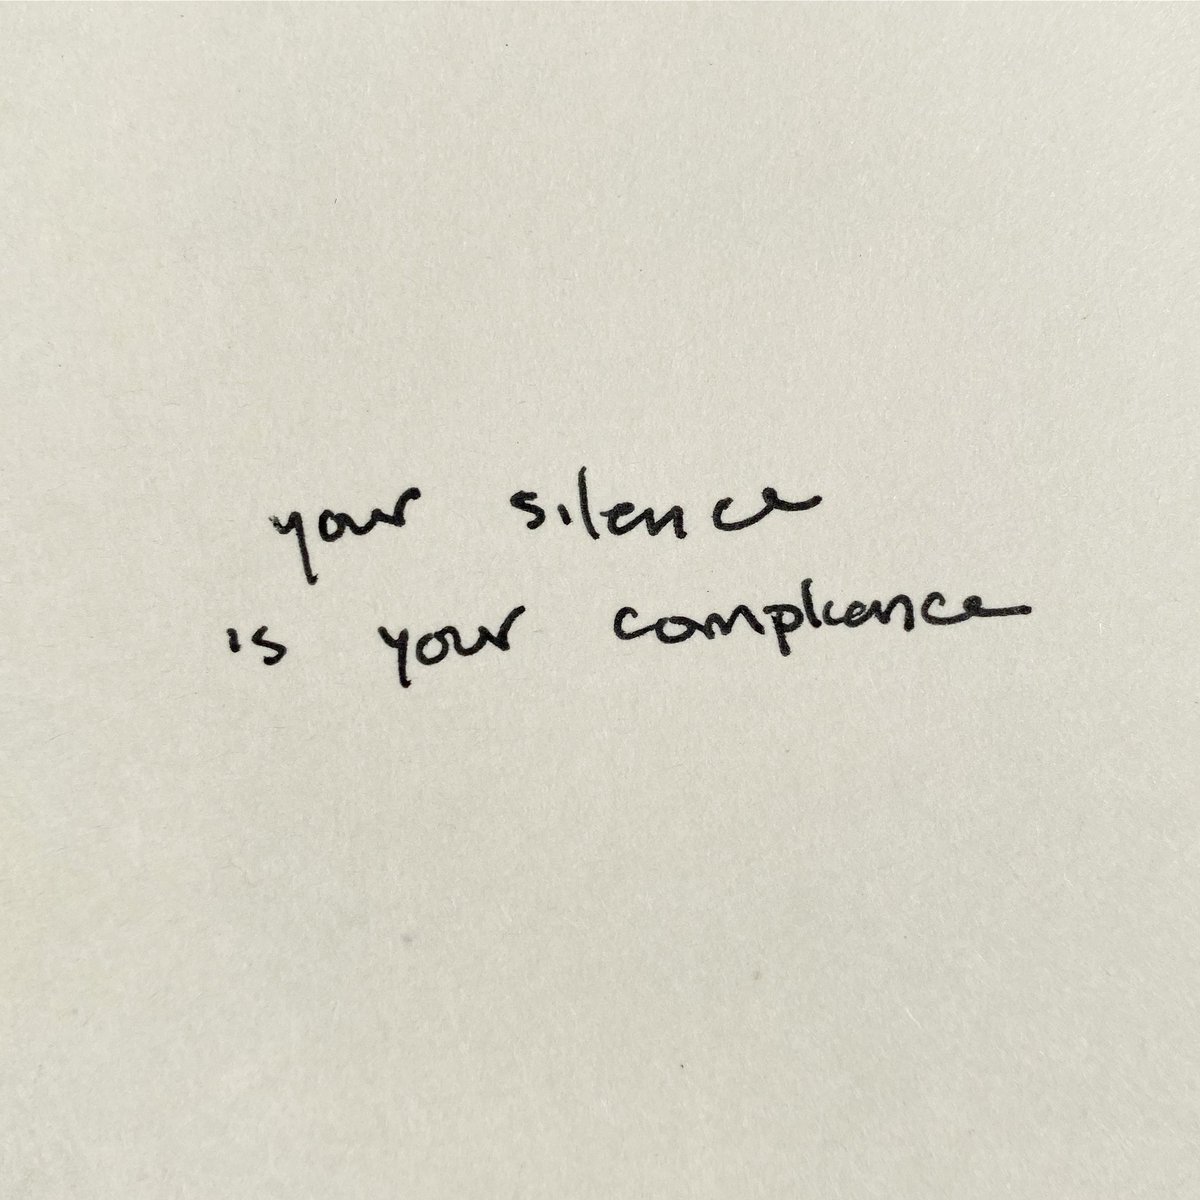 your silence
is your compliance